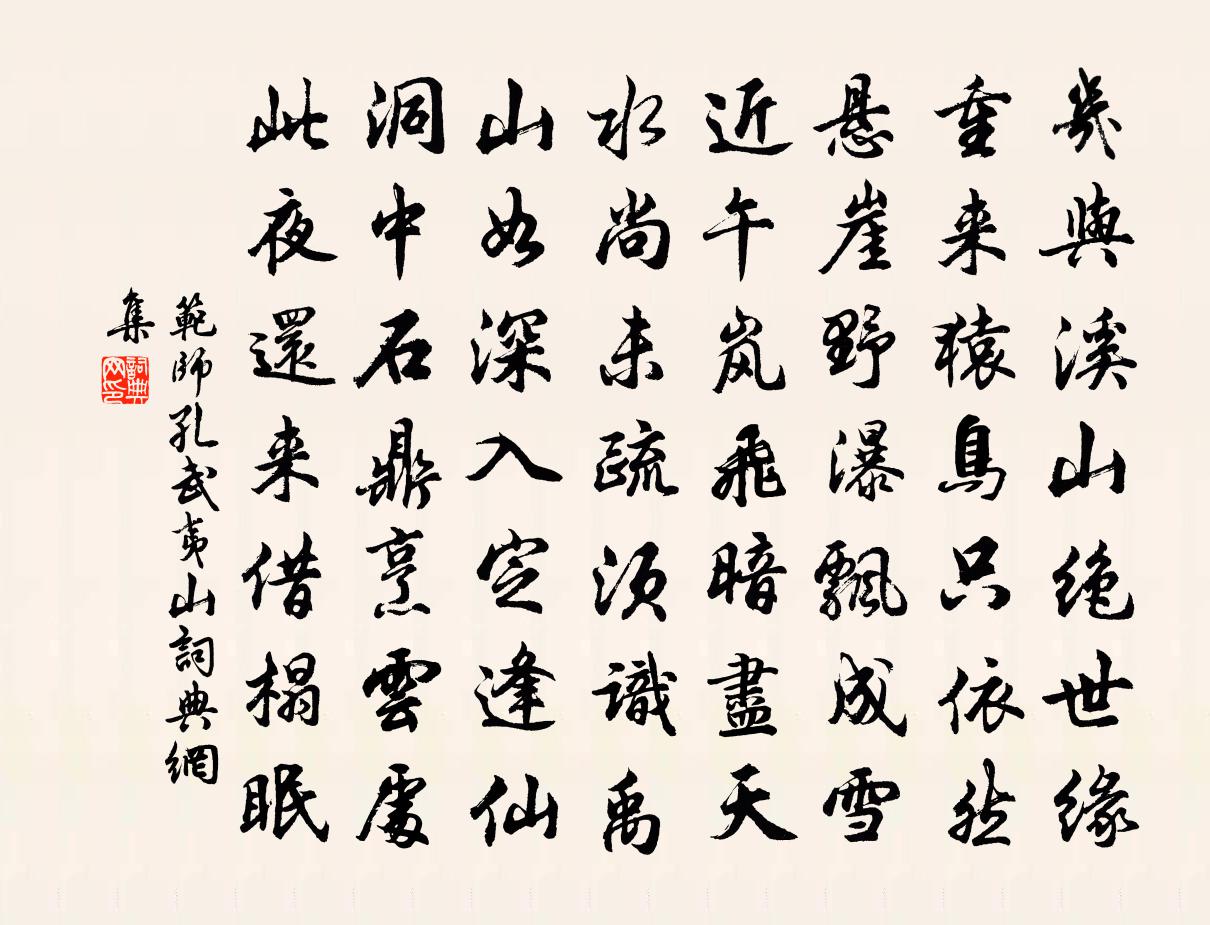 幾與溪山絶世緣
重来猿鳥只依然
懸崖野瀑飄成雪
近午嵐飛暗盡天
水尚未疏須識禹
山如深入定逢仙
洞中石鼎烹雲處
此夜還来借榻眠
範師孔武夷山詞典網
集
詞典
网印